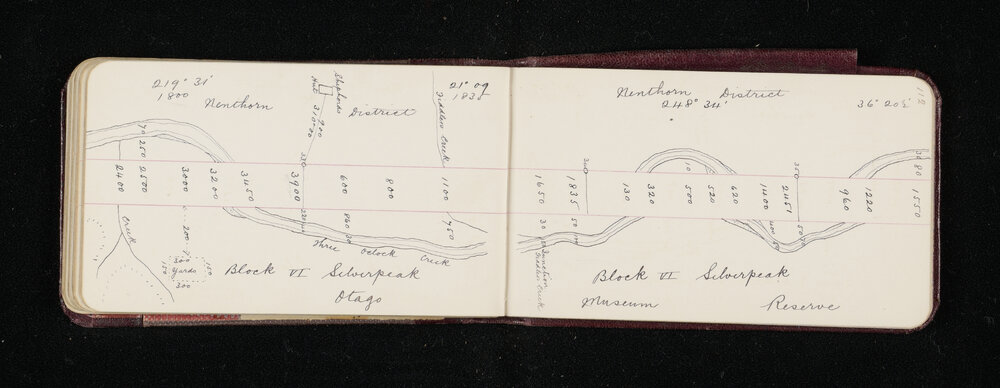 219° 31'
1800
Nenthorn District
Shepherds
Hut
21° 09
1830
Fiddlers Creek
70 250
2400
2500
3000
3200
3450
3900
600
800
1100
Creek
200
Yards
300
150
150
Three Oclock Creek
750
Block VI Silverpeak
Otago
112
Nenthorn District
248° 34'
1650
1835
130
320
500
520
620
1400
2451
960
1220
1550
30
Junction
Fiddlers Creek
Block VI Silverpeak
Museum Reserve